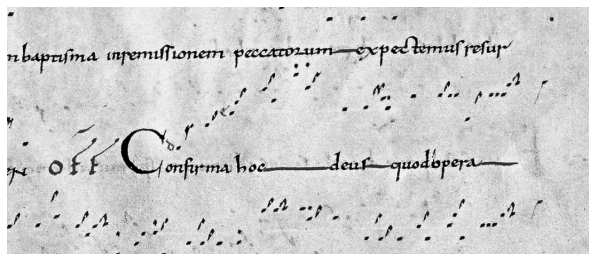 nbaptisma inremissionem peccatorum expectemus resur
off Confirma hoc deus quod opera